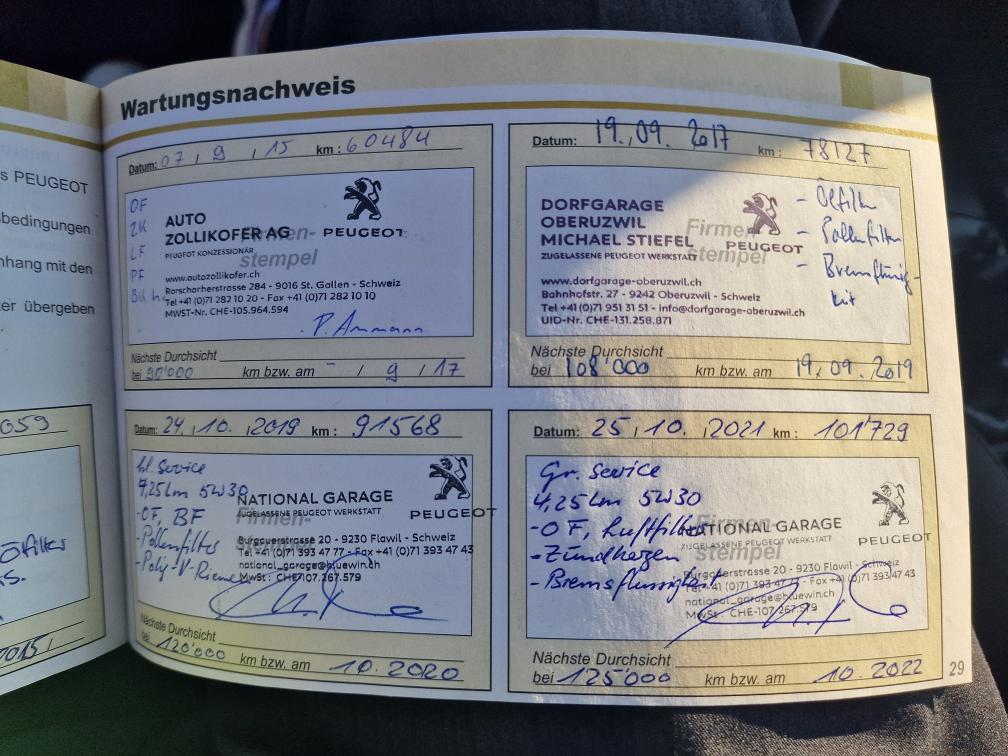 s PEUGEOT
bedingungen
nhang mit den
ter übergeben
059
Ölfilter
2015
Wartungsnachweis
Datum: 07 / 9 / 15 km: 60484
OF
ZK
LF
PF
AUTO
ZOLLIKOFER AG
PEUGEOT KONZESSIONÄR
PEUGEOT
Firmen-
stempel
www.autozollikofer.ch
Rorschorherstrasse 284 - 9016 St. Gallen - Schweiz
Tel +41 (0)71 282 10 20 - Fax +41 (0)71 282 10 10
MWST-Nr. CHE-105.964.594
P. Ammann
Nächste Durchsicht
bei 90'000 km bzw. am - / 9 / 17
Datum: 19., 09. 2017 km: 78127
DORFGARAGE
OBERUZWIL
MICHAEL STIEFEL
ZUGELASSENE PEUGEOT WERKSTATT
PEUGEOT
Firmen-
stempel
www.dorfgarage-oberuzwil.ch
Bahnhofstr. 27 - 9242 Oberuzwil - Schweiz
Tel +41 (0)71 951 31 51 - info@dorfgarage-oberuzwil.ch
UID-Nr. CHE-131.258.871
- Ölfilter
- Pollenfilter
- Bremsflüssig-
keit
Nächste Durchsicht
bei 108'000 km bzw. am 19. 09. 2019
Datum: 24. / 10. / 2019 km: 91568
kl. Service
4,25 Ltr 5W30
-OF, BF
-Pollenfilter
-Poly-V-Riemen
NATIONAL GARAGE
ZUGELASSENE PEUGEOT WERKSTATT
PEUGEOT
Firmen-
Burgauerstrasse 20 - 9230 Flawil - Schweiz
Tel +41 (0)71 393 47 77 - Fax +41 (0)71 393 47 43
national_garage@bluewin.ch
MWSt : CHE-107.267.579
Nächste Durchsicht
bei 120'000 km bzw. am 10. 2020
Datum: 25 / 10. / 2021 km: 101'729
Gr. Service
4,25 Ltr 5W30
-OF, Luftfilter
-Zündkerzen
-Bremsflüssigkeit
NATIONAL GARAGE
ZUGELASSENE PEUGEOT WERKSTATT
PEUGEOT
Firmen-
stempel
Burgauerstrasse 20 - 9230 Flawil - Schweiz
Tel +41 (0)71 393 47 77 - Fax +41 (0)71 393 47 43
national_garage@bluewin.ch
MWSt : CHE-107.267.579
Nächste Durchsicht
bei 125'000 km bzw. am 10. 2022
29